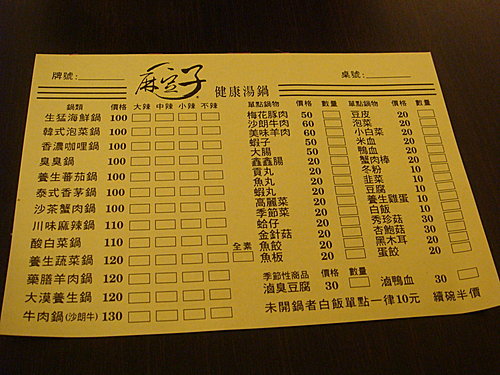 牌號:
麻豆子 健康湯鍋
桌號:
鍋類 價格 大辣 中辣 小辣 不辣
生猛海鮮鍋 100
韓式泡菜鍋 100
香濃咖哩鍋 100
臭臭鍋 100
養生蕃茄鍋 100
泰式香茅鍋 100
沙茶蟹肉鍋 100
川味麻辣鍋 110
酸白菜鍋 110
養生蔬菜鍋 120 全素
藥膳羊肉鍋 120
大漠養生鍋 120
牛肉鍋(沙朗牛) 130
單點鍋物 價格 數量
梅花豚肉 50
沙朗牛肉 60
美味羊肉 60
蝦子 50
大腸 50
鑫鑫腸 20
貢丸 20
魚丸 20
蝦丸 20
高麗菜 20
季節菜 20
蛤仔 20
金針菇 20
魚餃 20
魚板 20
單點鍋物 價格 數量
豆皮 20
泡菜 20
小白菜 20
米血 20
鴨血 20
蟹肉棒 20
冬粉 10
韭菜 10
豆腐 10
養生雞蛋 10
白飯 10
秀珍菇 30
杏鮑菇 30
黑木耳 20
蛋餃 20
季節性商品 價格 數量
滷臭豆腐 30
滷鴨血 30
未開鍋者白飯單點一律10元 續碗半價